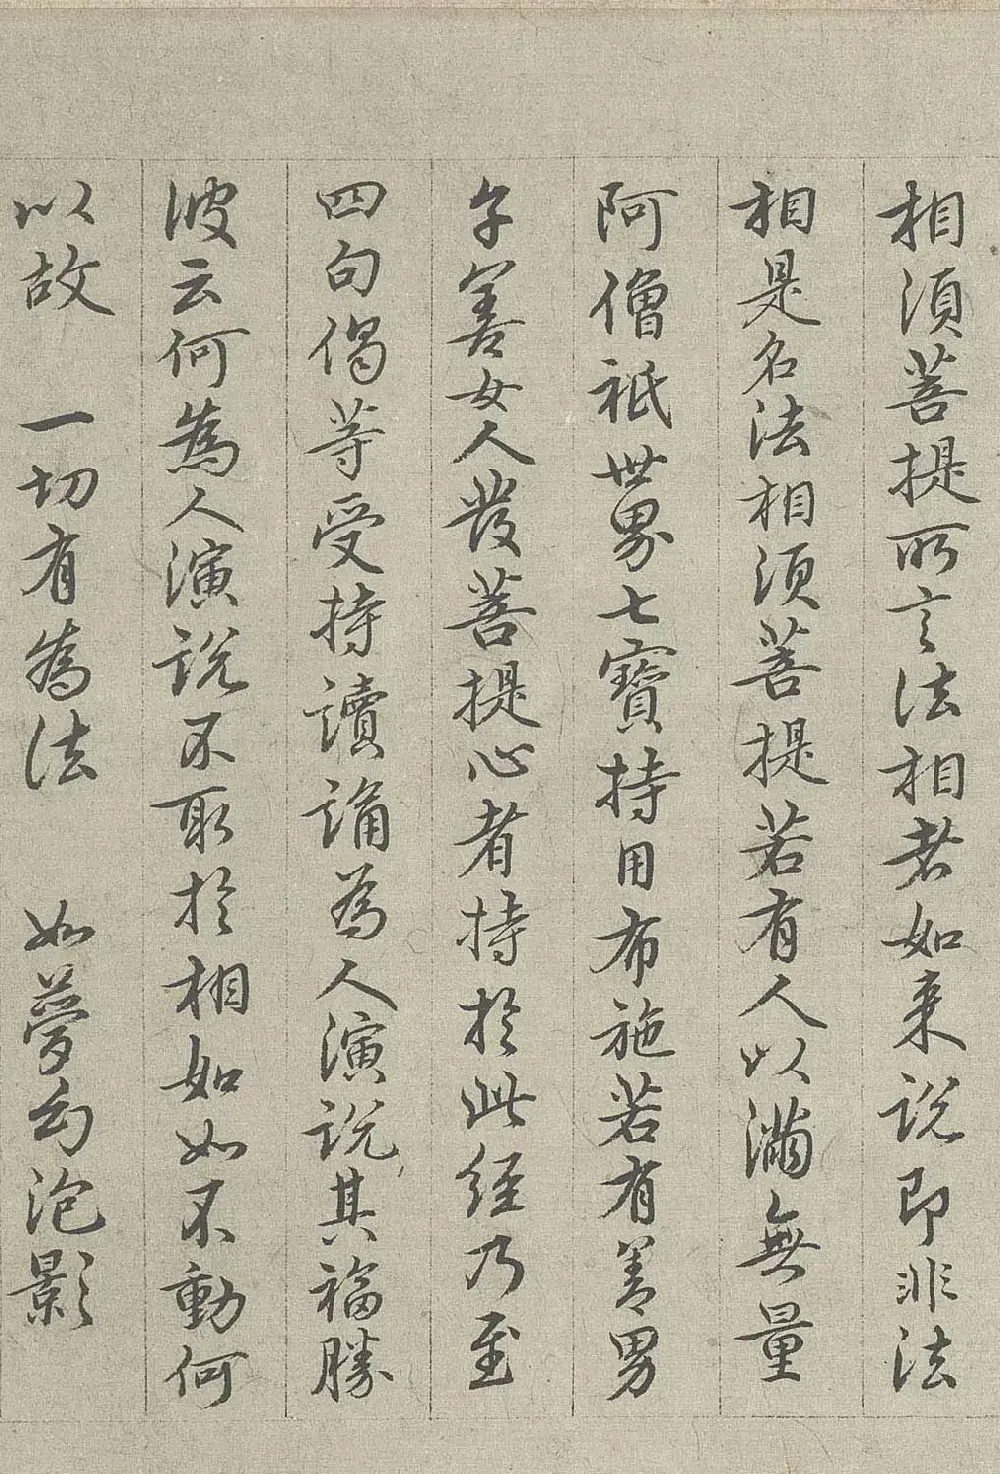 相須菩提所言法相者如来説即非法
相是名法相須菩提若有人以滿無量
阿僧祇世界七寶持用布施若有善男
子善女人發菩提心者持於此経乃至
四句偈等受持讀誦為人演説其福勝
彼云何為人演説不取於相如如不動何
以故 一切有為法 如夢幻泡影